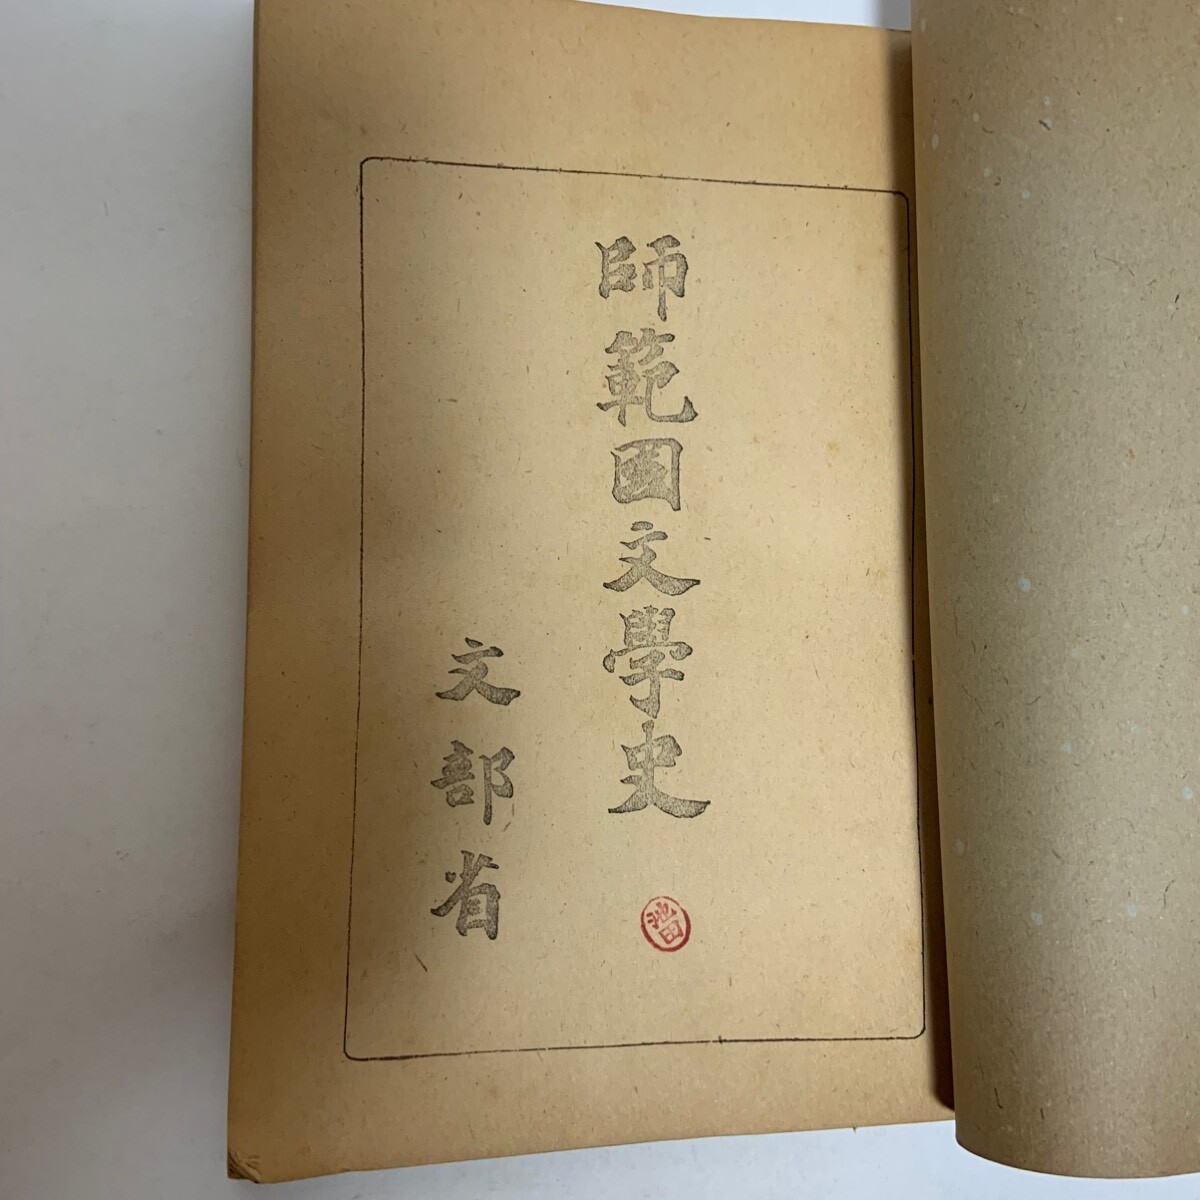 師範国文學史
文部省
池田